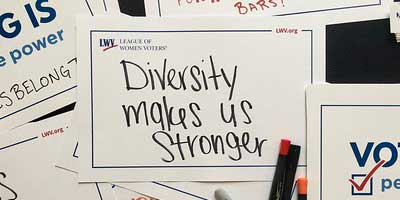 G IS
power
BELONG?
LWV.org
BARS!
LWV.org
LWV LEAGUE OF
WOMEN VOTERS®
Diversity
makes us
Stronger
VOT
pe